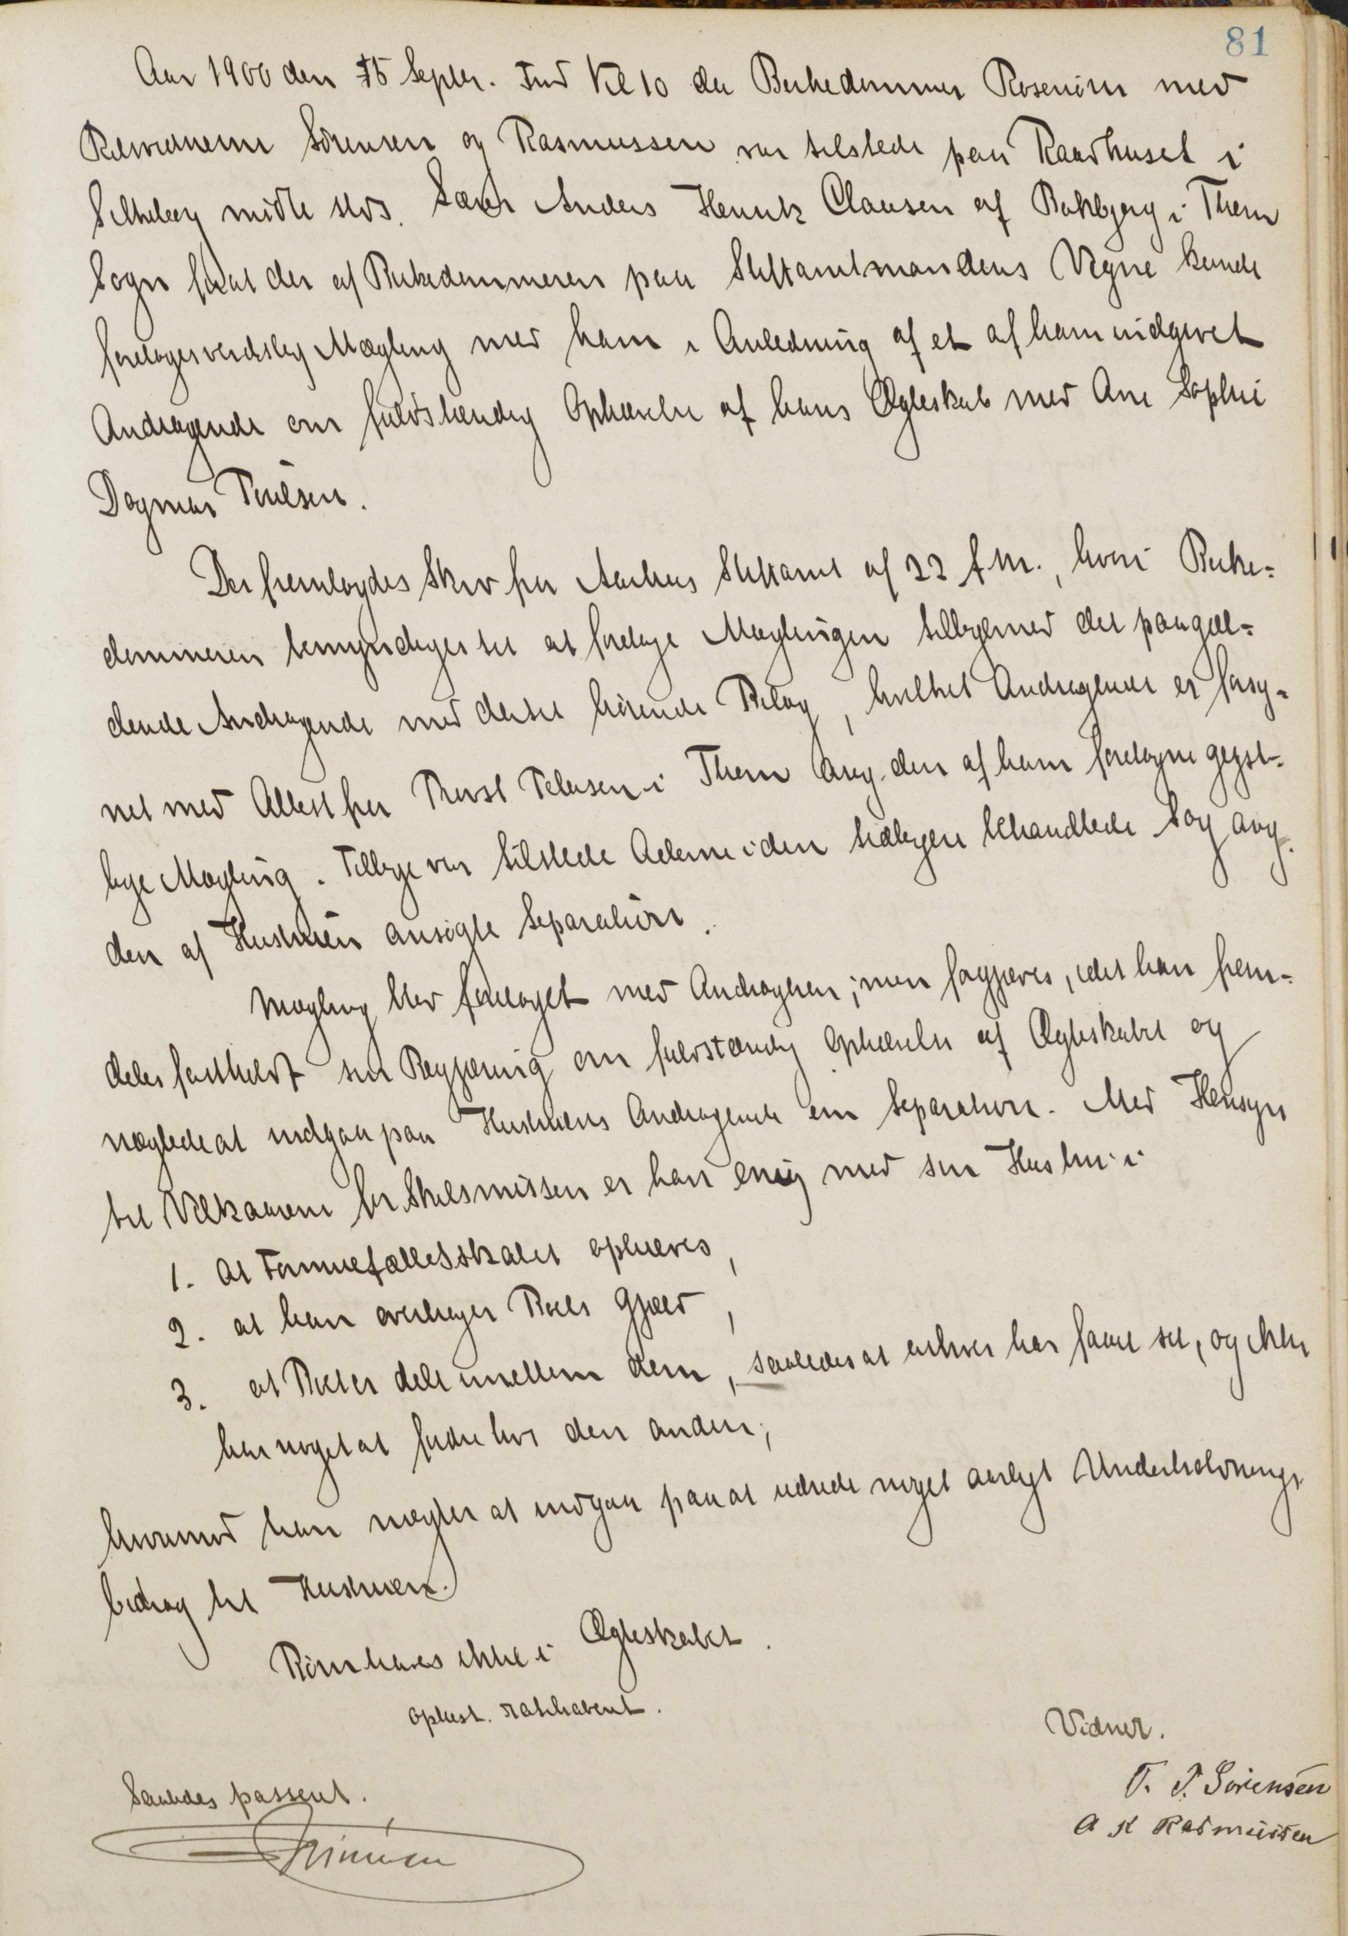 81
Aar 1900 den 15 Septbr. Fmd Kl 10 da Birkedommer Rosenörn med
Retsvidnerne Sörensen og Rasmussen var tilstede paa Raadhuset i
Silkeborg mødte Anders Henrik Clausen af i Them
Sogn for at der af Birkedommeren paa Stiftamtmandens Vegne kunde
foretages verdslig Mægling med ham i Anledning af et af ham indgivet
Andragende om fuldstændig Ophævelse af hans Ægteskab med Ane Sophie
Dagmar Poulsen.
Der fremlagdes Skriv fra Aarhus Stiftamt af 22 f. M., hvori Birke=
dommeren bemyndiges til at foretage Mæglingen tilligemed det paagjæl=
dende Andragende med dertil hörende Bilag, hvilket Andragende er forsy=
net med Attest fra Provst i Them ang. den af ham foretagne gejst-
lige Mægling. Tillige var tilstede Acterne i den tidligere behandlede Sag ang.
den af Hustruen ansögte Separation.
Mægling blev foretaget med Andrageren; men forgjæves, idet han frem=
deles fastholdt sin Begjæring om fuldstændig Ophævelse af Ægteskabet og
nægtede at indgaa paa Hustruens Andragende om Separation. Med Hensyn
til Vilkaarene for Skilsmissen er han enig med sin Hustru i
1. at Formuefællesskabet ophæves,
2. at han overtager Boets Gjæld,
3. at Boet er delt imellem dem, saaledes at enhver har faaet sit, og ikke
har noget at fordre hos den anden;
hvorimod han nægter at indgaa paa at udrede noget aarligt Underholdnings
bidrag til Hustruen.
Börn haves ikke i Ægteskabet.
Oplæst. ratihaberet.
Vidner.
Saaledes passeret.
F. P. Sörensen
Rosenörn
A K Rasmussen